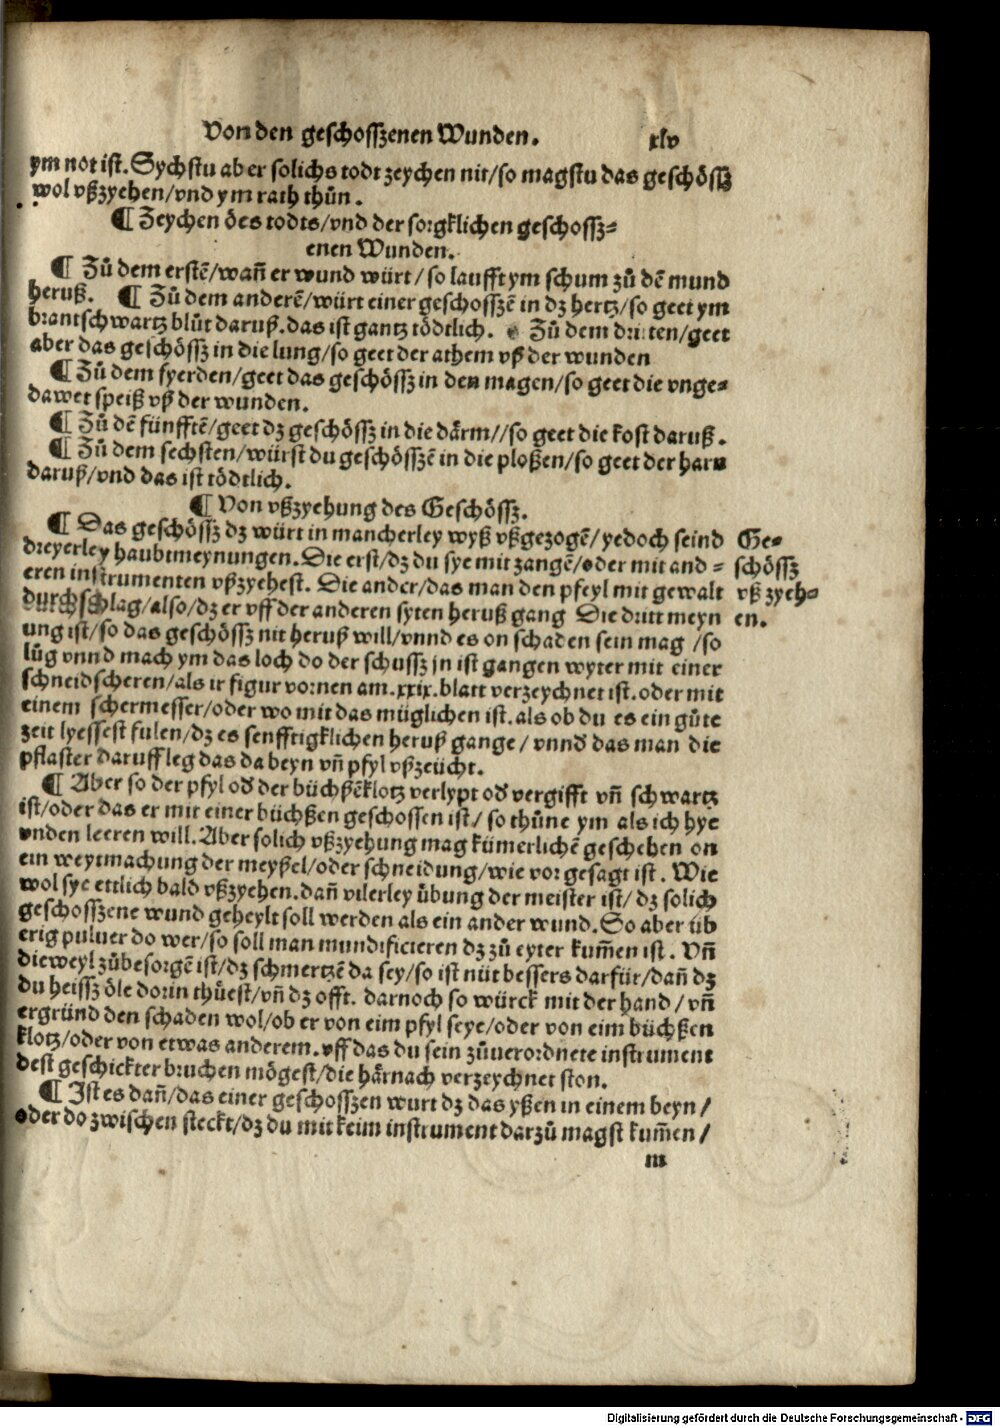 Von den geschosszenen Wunden. xlv
ym not ist. Sychstu aber solichs todt zeychen nit/so magstu das geschössz
wol vßzyehen/vnd ym rath thůn.
¶ Zeychen des todts/vnd der sorgklichen geschossz⸗
enen Wunden.
¶ Zů dem erstē/wañ er wund würt/so laufft ym schum zů dē mund
heruß. ¶ Zů dem anderē/würt einer geschosszē in dz hertz/so geet ym
brantschwartz blůt daruß. das ist gantz tödtlich. Zů dem dritten/geet
aber das geschössz in die lung/so geet der athem vß der wunden
¶ Zů dem fyerden/geet das geschössz in den magen/so geet die vnge⸗
dawet speiß vß der wunden.
¶ Zů dē fünfftē/geet dz geschössz in die därm//so geet die kost daruß.
¶ Zů dem sechsten/würst du geschösszē in die ploßen/so geet der harn
daruß/vnd das ist tödtlich.
¶ Von vßzyehung des Geschössz.
¶ Das geschössz dz würt in mancherley wyß vßgezogē/yedoch seind
dreyerley haubtmeynungen. Die erst/dz du sye mit zangē/oder mit and⸗
eren instrumenten vßzyehest. Die ander/das man den pfeyl mit gewalt
durchschlag/also/dz er vff der anderen syten heruß gang Die dritt meyn
ung ist/so das geschössz nit heruß will/vnnd es on schaden sein mag /so
lůg vnnd mach ym das loch do der schussz in ist gangen wyter mit einer
schneidscheren/als ir figur vornen am .xxix. blatt verzeychnet ist. oder mit
einem schermesser/oder wo mit das müglichen ist. als ob du es ein gůte
zeit lyessest fulen/dz es senfftigklichen heruß gange/vnnd das man die
pflaster daruff leg das da beyn vñ pfyl vßzeücht.
Ge⸗
schössz
vß zyeh⸗
en.
¶ Aber so der pfyl od der büchßēklotz verlypt od vergifft vñ schwartz
ist/oder das er mit einer büchßen geschossen ist/so thůne ym als ich hye
vnden leeren will. Aber solich vßzyehung mag kümerlichē geschehen on
ein weytmachung der meyßel/oder schneidung/wie vor gesagt ist. Wie
wol sye ettlich bald vßzyehen. dañ vilerley übung der meister ist/dz solich
geschosszene wund geheylt soll werden als ein ander wund. So aber üb
erig puluer do wer/so soll man mundificieren dz zů eyter kum̄en ist. Vñ
dieweyl zůbesorgē ist/dz schmertzē da sey/so ist nüt bessers darfür/dañ dz
du heissz öle dorin thůest/vñ dz offt. darnoch so würck mit der hand/vñ
ergründ den schaden wol/ob er von eim pfyl seye/oder von eim büchßen
klotz/oder von etwas anderem. vff das du sein zůuerordnete instrument
dest geschickter bruchen mögest/die härnach verzeychnet ston.
¶ Ist es dañ/das einer geschosszen wurt dz das yßen in einem beyn/
oder do zwischen steckt/dz du mit keim instrument darzů magst kum̄en/
m
Digitalisierung gefördert durch die Deutsche Forschungsgemeinschaft - DFG